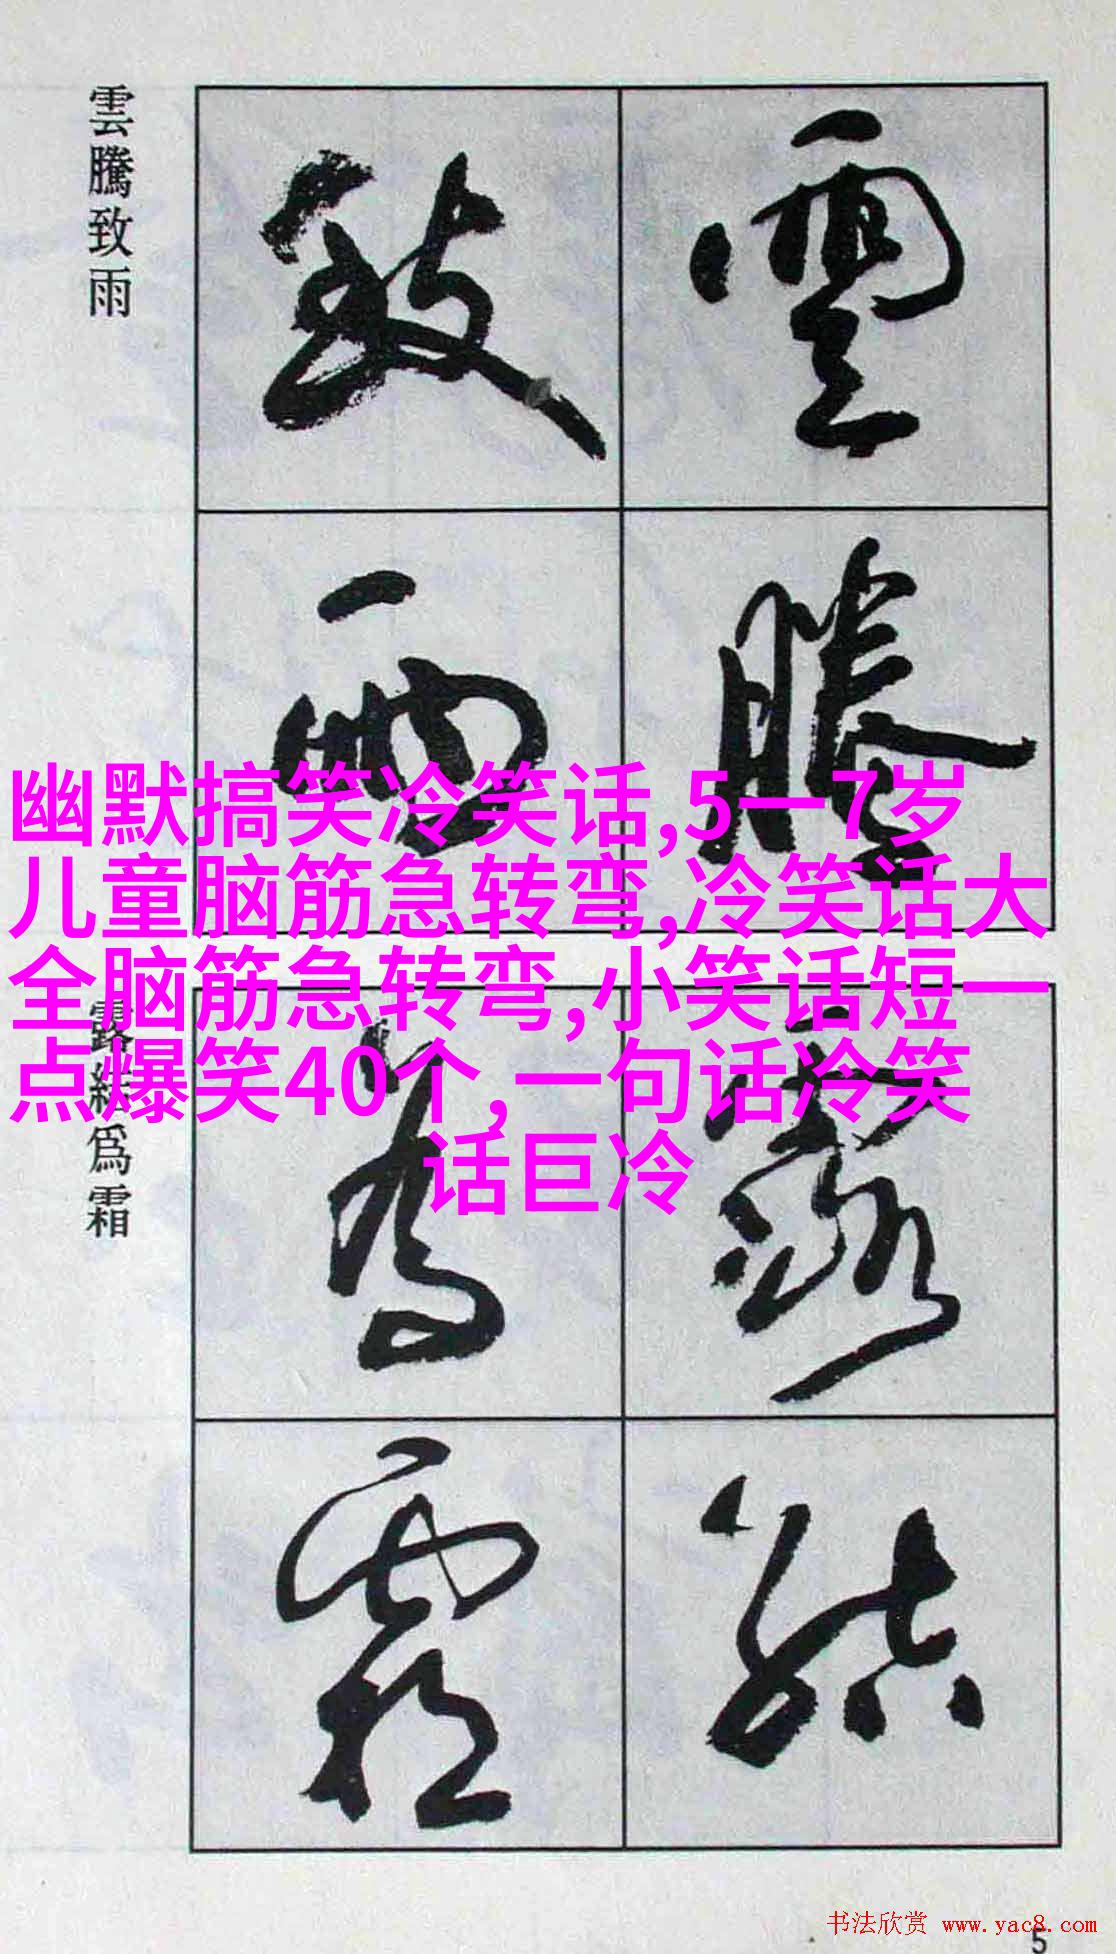 雲騰致雨
雲騰
致雨
幽默搞笑冷笑话,5一7岁
儿童脑筋急转弯,冷笑话大
全脑筋急转弯,小笑话短一
点爆笑40个,一句话冷笑
话巨冷
露結為霜
露結
為霜
书法欣赏 www.yac8.com
5